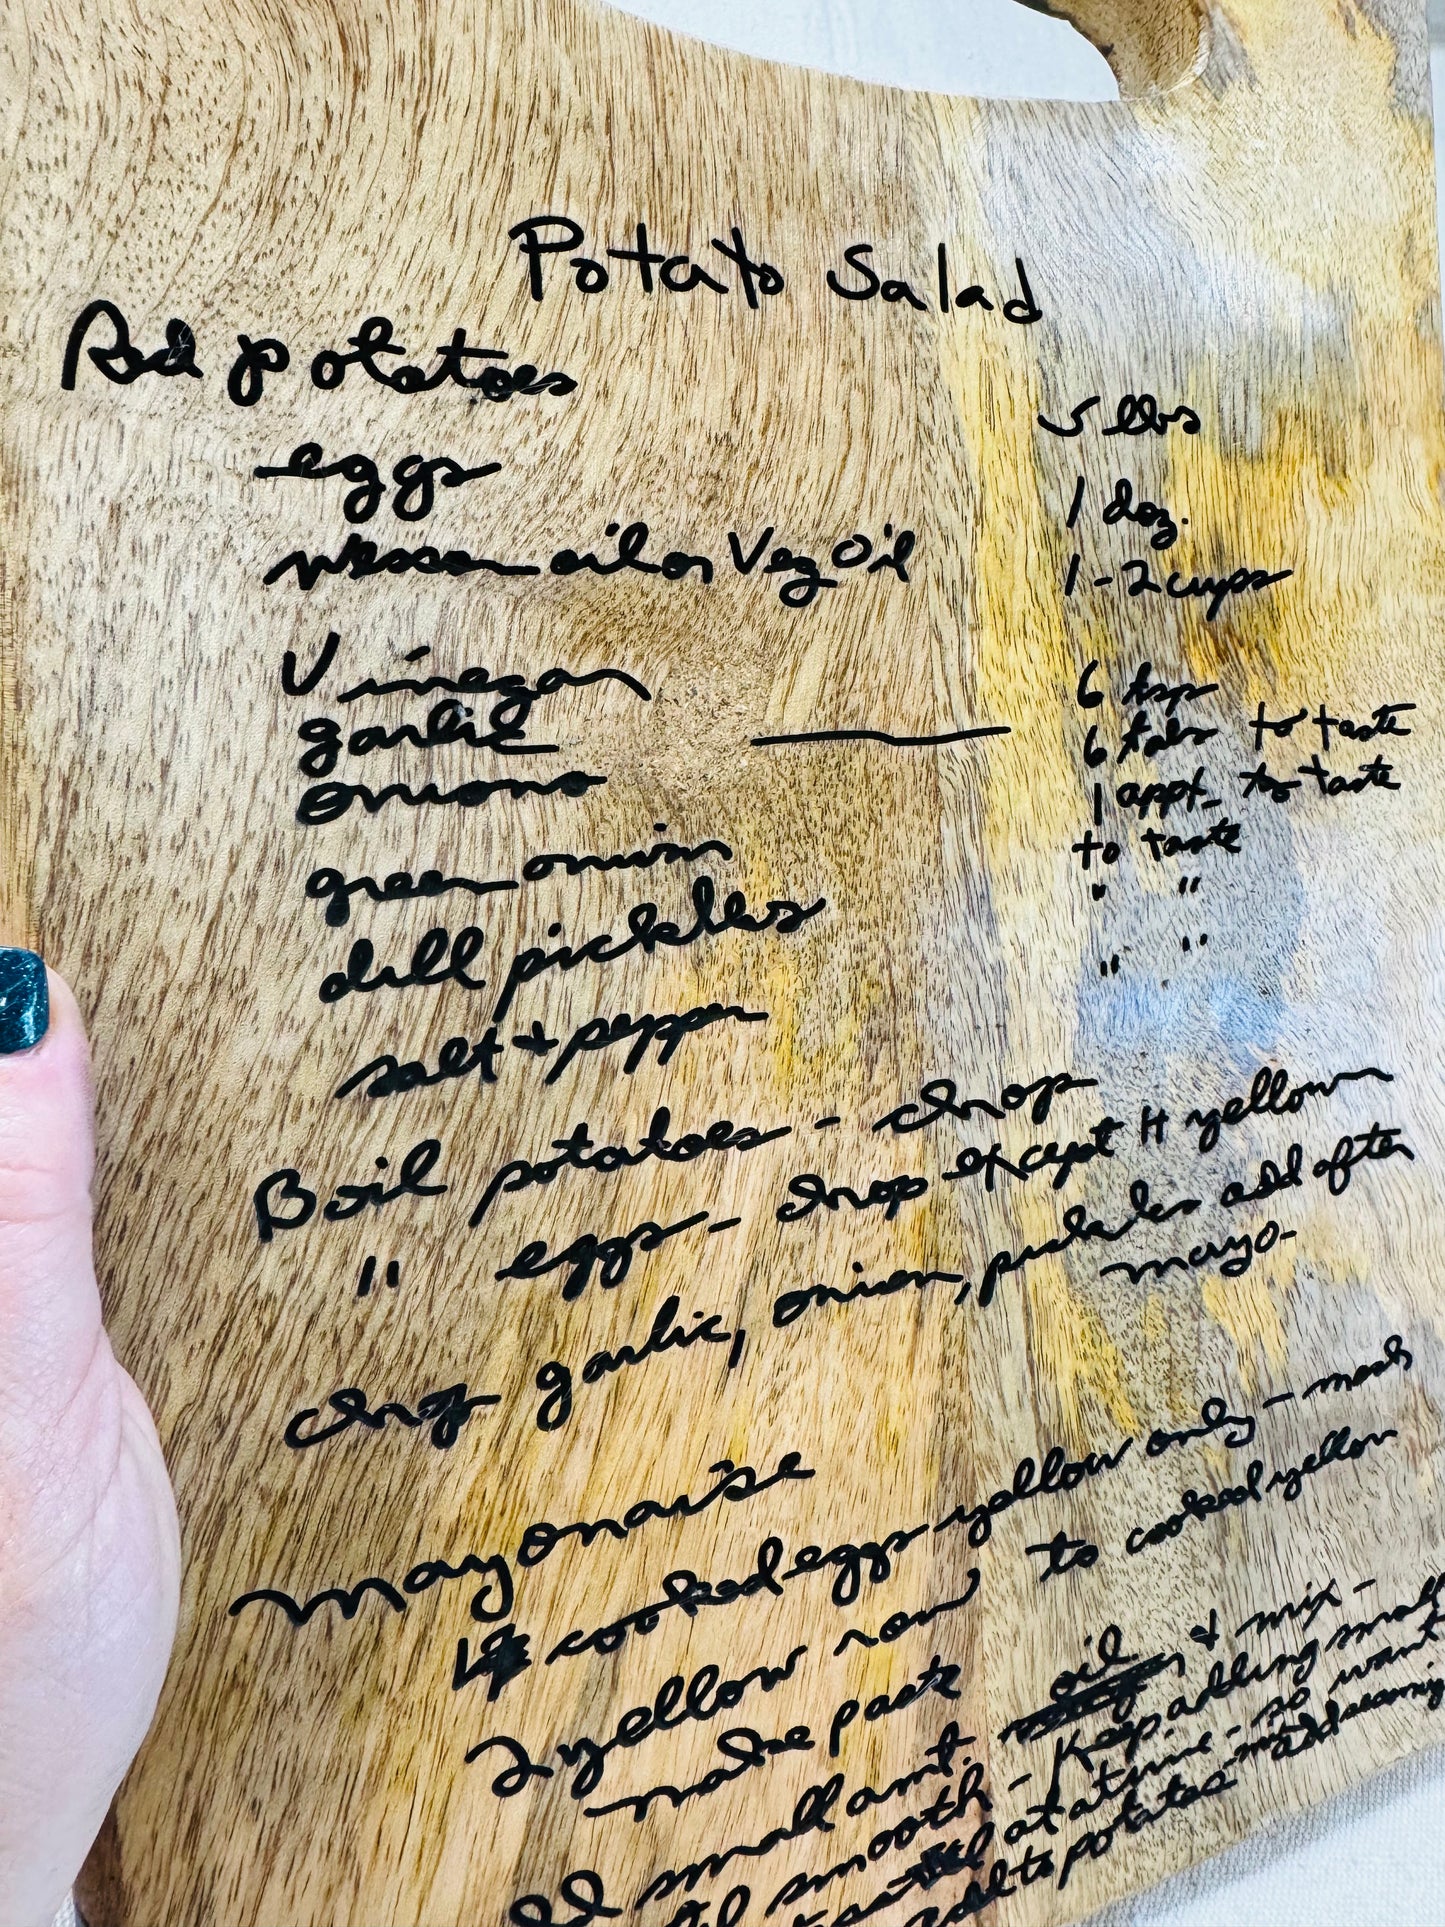 Potato Salad
Red potatoes 5 lbs
eggs 1 doz.
wesson oil or Veg Oil 1-2 cups
Vinegar 6 tsp
garlic 6 tabs to taste
onions 1 appx_ to taste
green onion to taste
dill pickles " "
salt + pepper " "
Boil potatoes - chop
" eggs - chop except 4 yellow
chop garlic, onion, pickles add after
mayo-
mayonaise
4 cooked eggs yellow only - mash
2 yellow raw to cooked yellow
make paste
small amt. oil & mix -
smooth - Keep adding small
at a time - so want
add to potatoes add seasoning